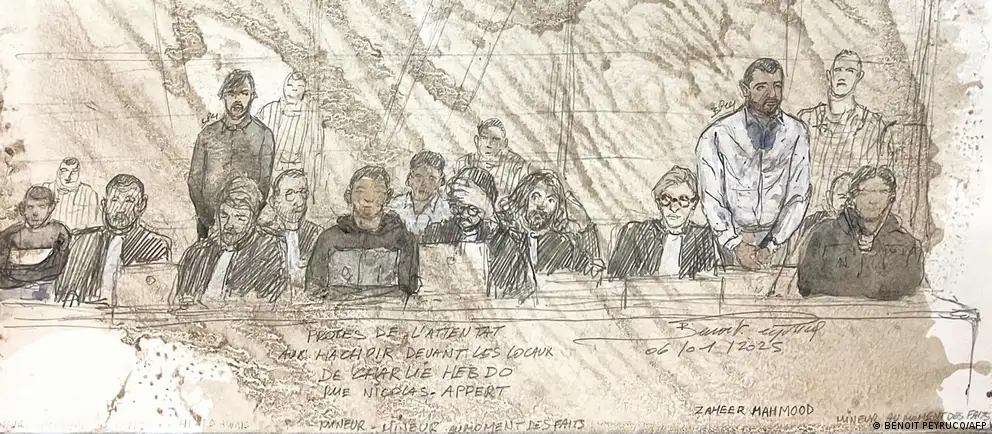 PROTES DE L'ATTENTAT
AUX HACHOIR DEVANT LES LOCAUX
DE CHARLIE HEBDO
RUE NICOLAS-APPERT
06/01/2025
ZAHEER MAHMOOD
MINEUR - MINEUR AU MOMENT DES FAITS
MINEUR AU MOMENT DES FAITS
© BENOIT PEYRUCQ/AFP